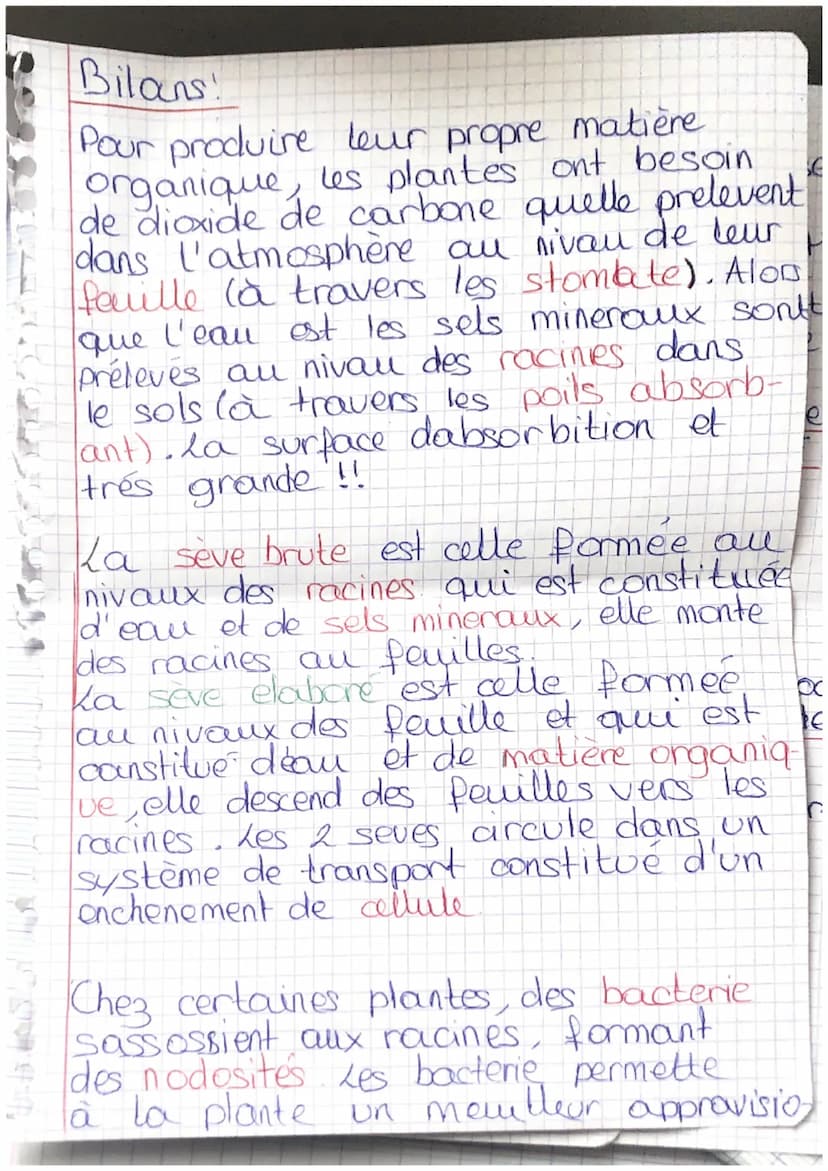 Bilans:
Pour produire leur propre matière
organique, les plantes ont besoin
de dioxide de carbone quelle prelevent
dans l'atmosphère au nivau de leur
feuille (à travers les stomate). Alors
que l'eau est les sels mineraux sontt
prélevés au nivau des racines dans
le sols (à travers les poils absorb-
ant). La surface dabsorbition et
trés grande !!
La sève brute est celle formée au
nivaux des racines qui est constituée
d'eau et de sels mineraux, elle monte
des racines au feuilles.
La seve elaboré est celle formeé
au nivaux des feuille et qui est
constitué déau et de matière organiq-
ue, elle descend des feuilles vers les
racines. Les 2 seves circule dans un
système de transport constitué d'un
enchenement de cellule
Chez certaines plantes, des bacterie
sassossient aux racines, formant
des nodosités. Les bacterie permette
à la plante un meuilleur approvisio-